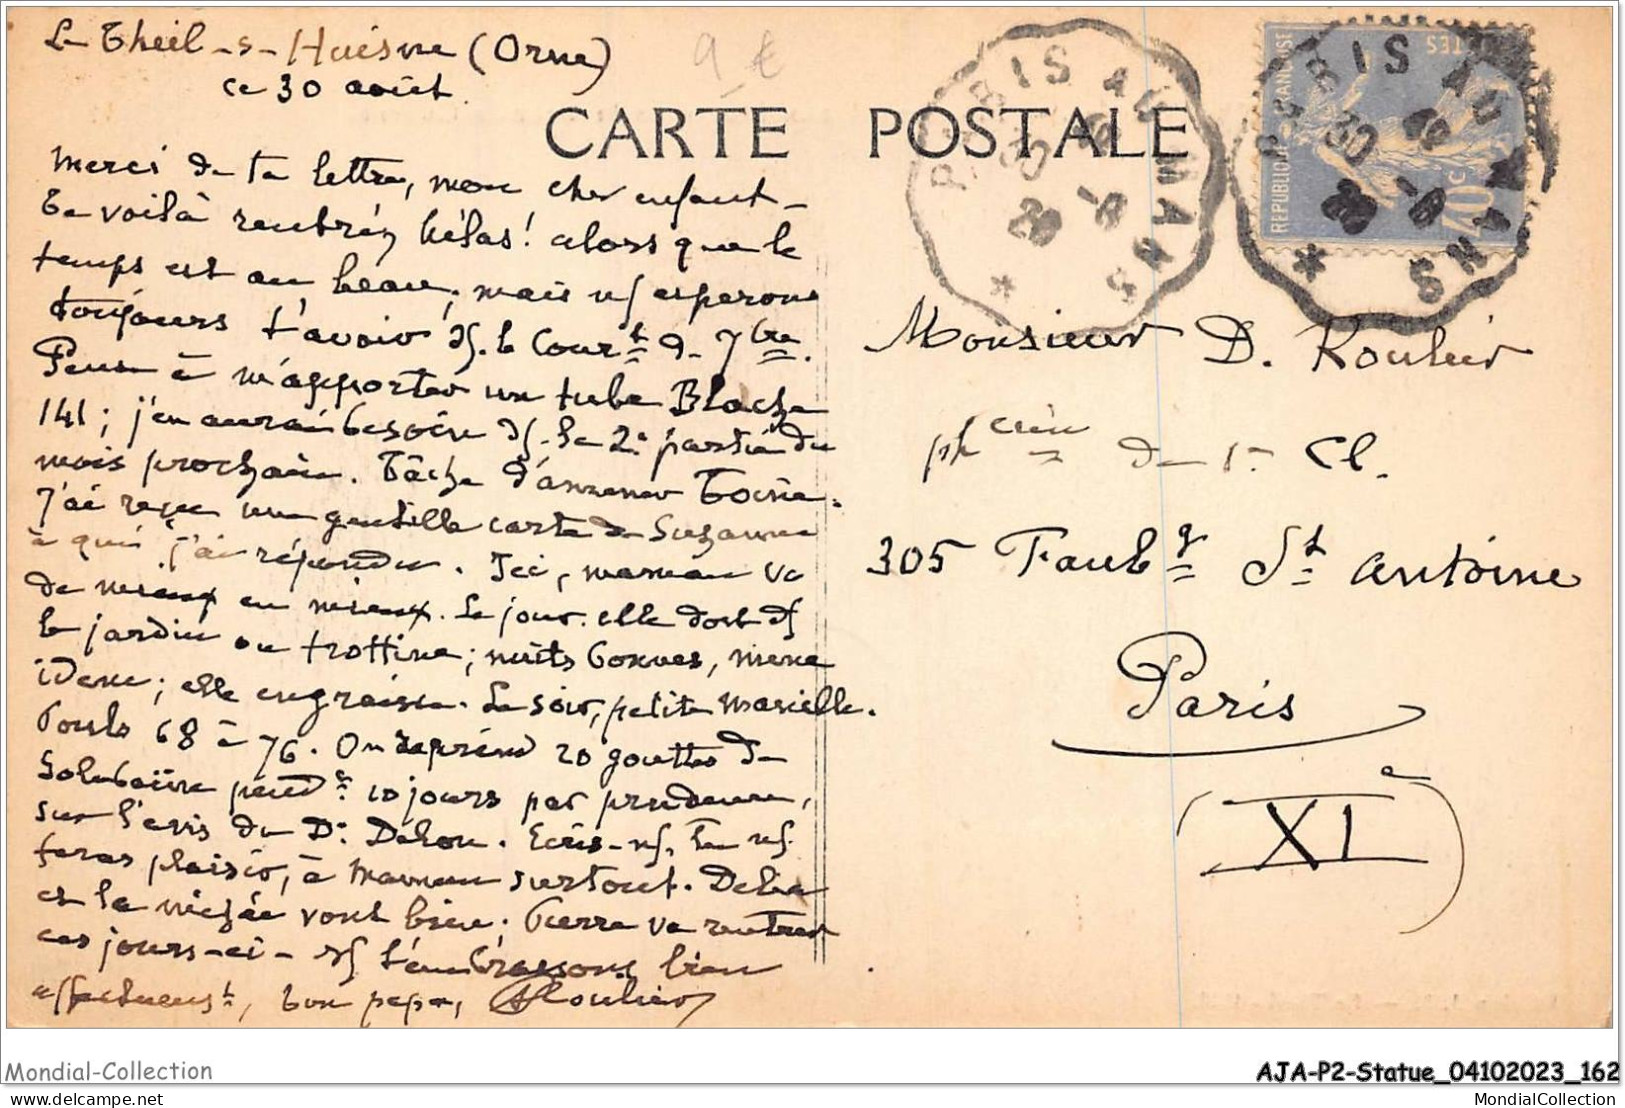 Le Theil-s-Huisne (Orne)
ce 30 août.
9 €
CARTE POSTALE
Merci de ta lettre, mon cher enfant -
Te voilà rentré, hélas! alors que le
temps est au beau; mais ns espérons
toujours t'avoir ds. le Court de 7bre.
Pense à m'apporter un tube Blache
141; j'en aurai besoin ds. la 2e partie du
mois prochain. Tâche d'amener Toinie.
J'ai reçu une gentille carte de Suzanne
à qui j'ai répondu. Ici, maman va
de mieux en mieux. Le jour elle dort ds
le jardin ou trottine; nuits bonnes, mine
idem; elle engraisse. Le soir, petite marielle.
Pouls 68 à 76. On reprend 20 gouttes de
Solubaïne pendt 10 jours par prudence,
sur l'avis du Dr. . Ecris-ns, tu ns.
feras plaisir, à maman surtout.
et la nichée vont bien. Pierre va rentrer
ces jours-ci - Ns t'embrassons bien
affectueust, ton papa, Roulier
PARIS AU MANS
30 -8
28
*
PARIS AU MANS
30 -8
28
*
REPUBLIQUE FRANÇAISE
POSTES
40 C
Monsieur D. Roulier
phcien de 1e Cl.
305 Faubg St Antoine
Paris
(XIe)
Mondial-Collection
AJA-P2-Statue_04102023_162
delcampe.net
MondialCollection